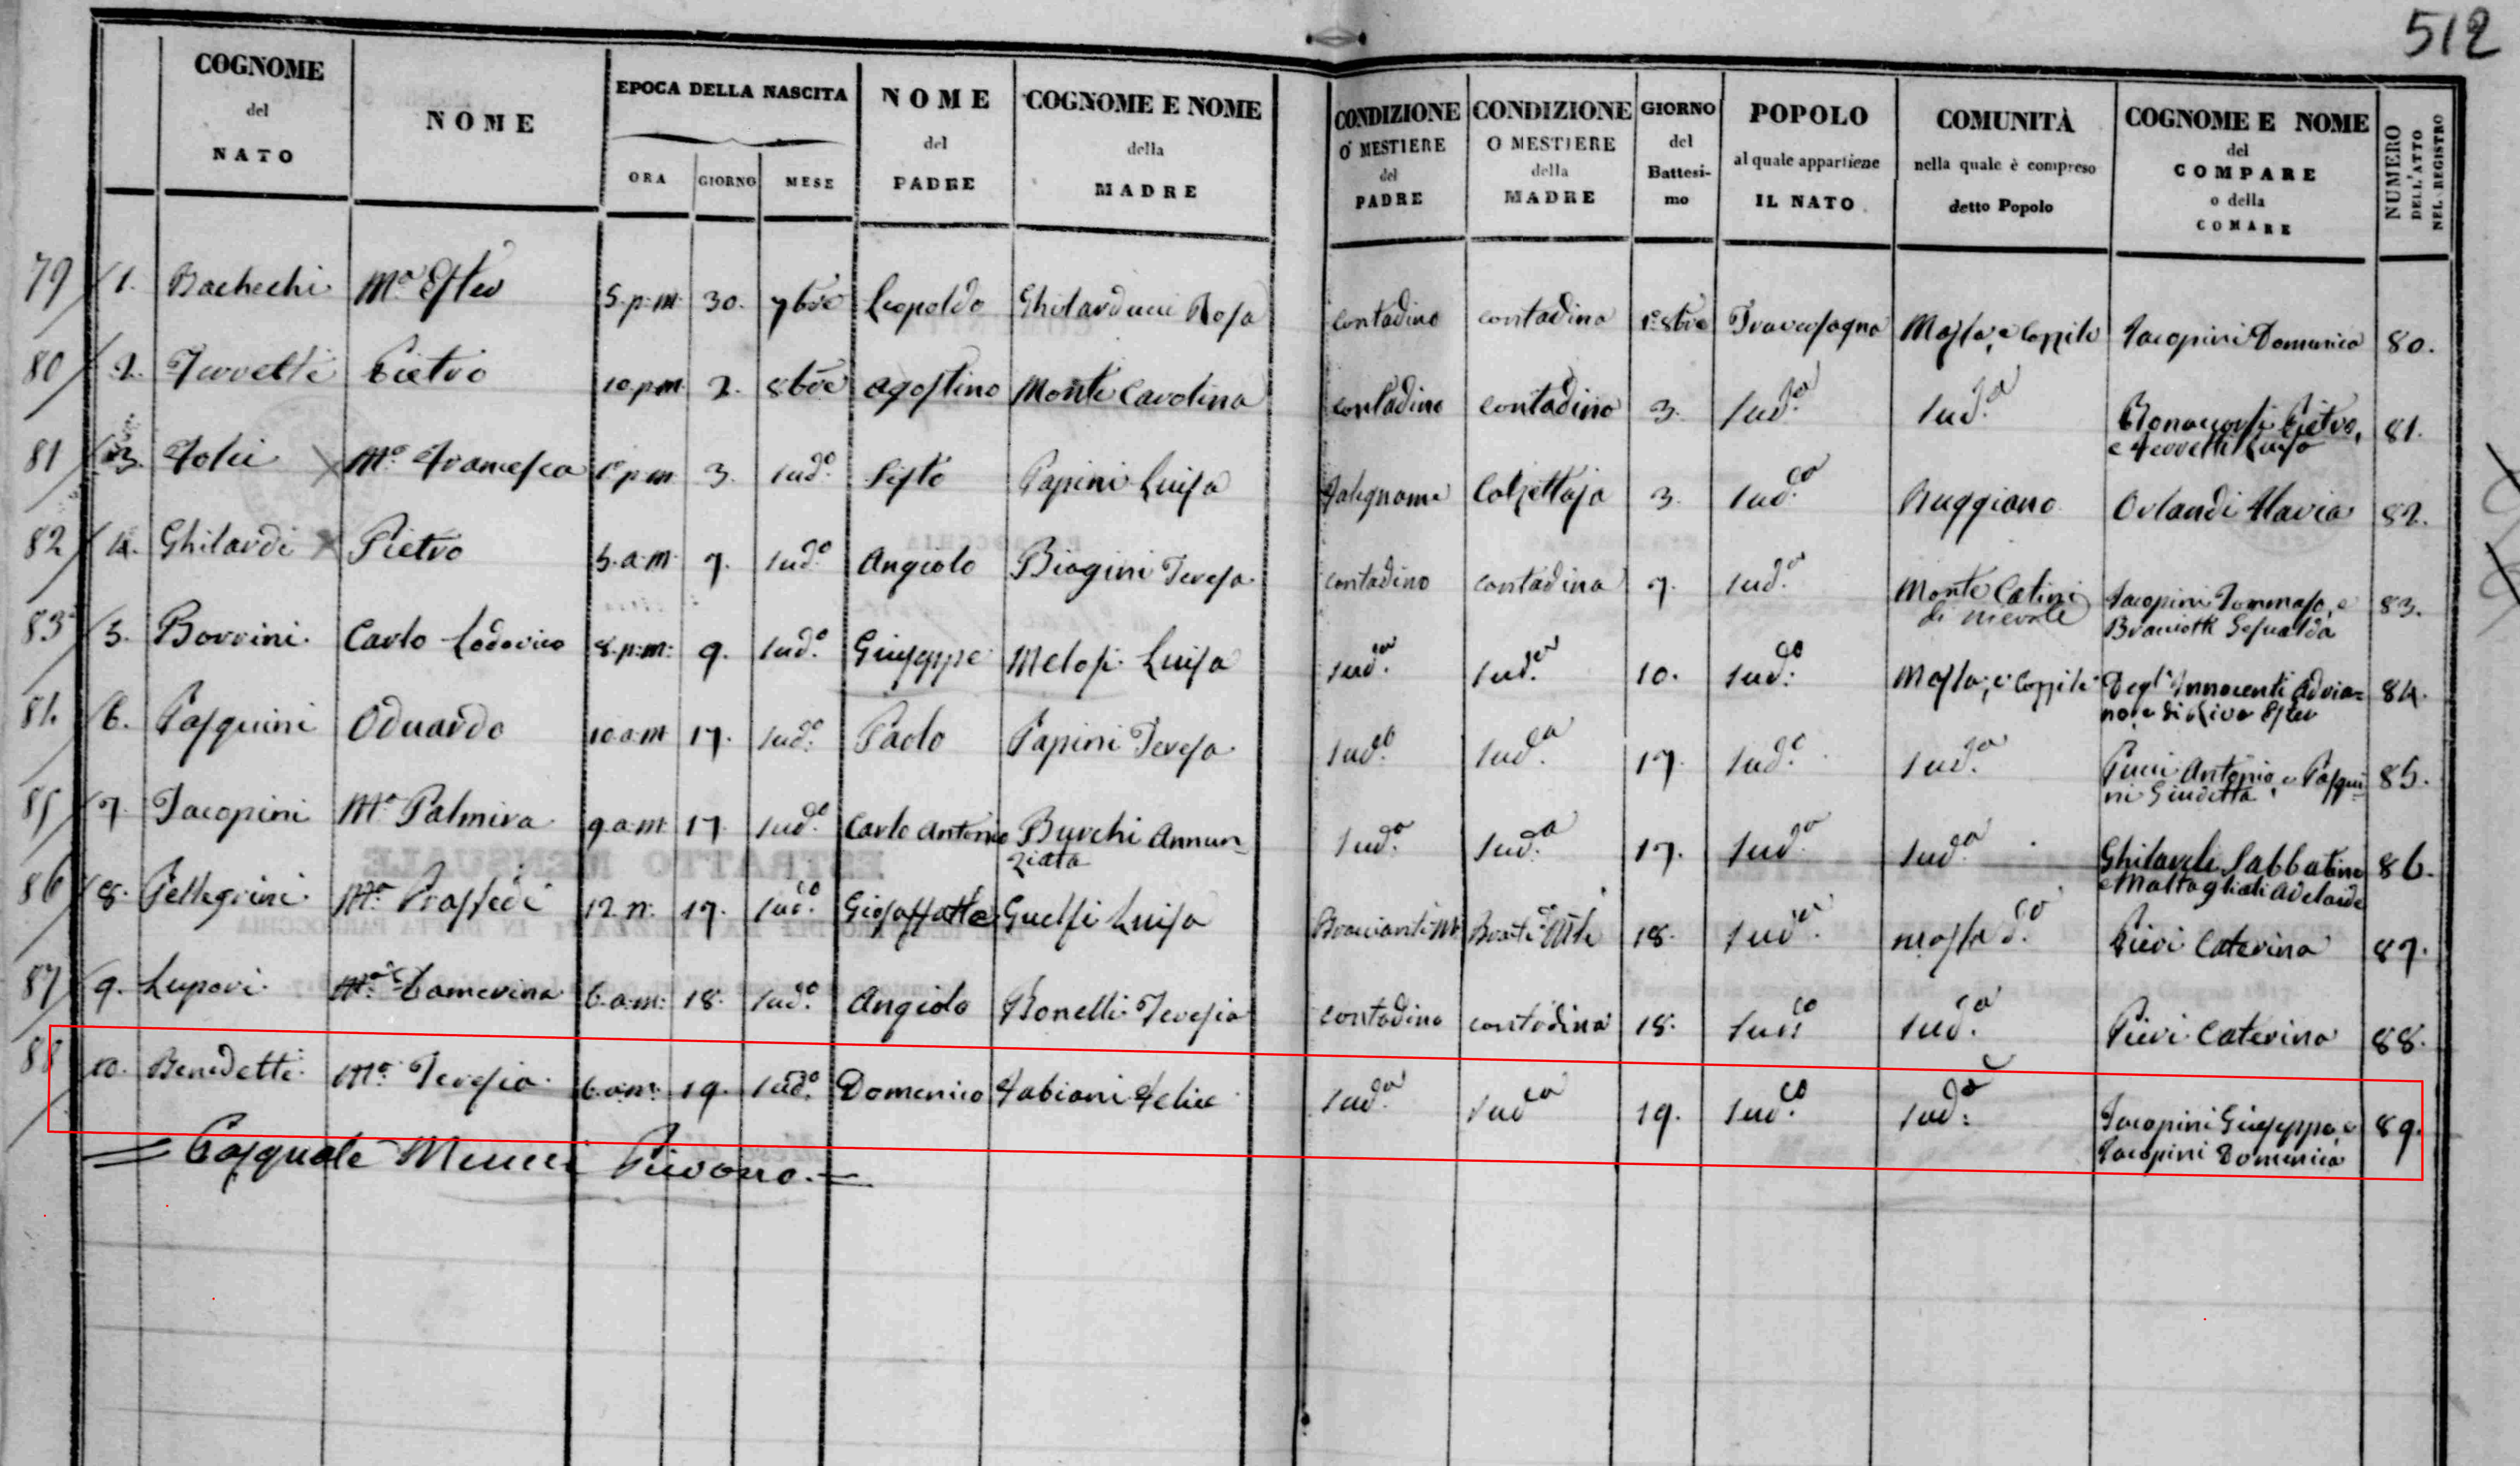 512
COGNOME del NATO
NOME
EPOCA DELLA NASCITA
ORA GIORNO MESE
NOME del PADRE
COGNOME E NOME della MADRE
CONDIZIONE O MESTIERE del PADRE
CONDIZIONE O MESTIERE della MADRE
GIORNO del Battesi-mo
POPOLO al quale appartiene IL NATO
COMUNITÀ nella quale è compreso detto Popolo
COGNOME E NOME del COMPARE o della COMARE
NUMERO DELL'ATTO NEL REGISTRO
79 1. Bachechi Ma Ester 5. p. m. 30. 7bre Leopoldo Ghilarducci Rosa contadino contadina 1o 8bre Traversagna Massa, e Cozzile Jacopini Domenica 80.
80 2. Ferretti Pietro 10 p. m. 2. 8bre Agostino Monti Carolina contadino contadina 3. Sudo Suda Bonaccorsi Pietro, e Ferretti Luisa 81.
81 3. Ma Francesca 1 p. m. 3. Sudo Sisto Papini Luisa Falegname Calzettaja 3. Sudo Buggiano Orlandi Maria 82.
82 4. Ghilardi Pietro 5. a. m. 7. Sudo Angiolo Biagini Teresa contadino contadina 7. Sudo Monte Catini di nievole Jacopini Tommaso, e Braciotti Gesualda 83.
83 5. Borrini Carlo Lodovico 8. p. m. 9. Sudo Giuseppe Melosi Luisa Sudo Suda 10. Sudo Massa, e Cozzile Degl'Innocenti Adria=no, e di Riva Ester 84.
84 6. Pasquini Oduardo 10 a. m. 17. Sudo Paolo Papini Teresa Sudo Suda 17. Sudo Suda Pucci Antonio, e Pasqui=ni Giuditta 85.
85 7. Jacopini Ma Palmira 9. a. m. 17. Sudo Carlo Antonio Burchi Annun=ziata Sudo Suda 17. Sudo Suda Ghilardi Sabbatino e Maltagliati Adelaide 86.
86 8. Pellegrini Ma Prassede 12. n. 17. Sudo Giosaffatte Guelfi Luisa 18. Sudo Massa da Pieri Caterina 87.
87 9. Lupori Ma Camerina 6. a. m. 18. Sudo Angiolo Bonelli Teresia contadino contadina 18. Sudo Suda Pieri Caterina 88.
88 10. Benedetti Ma Teresia 6. a. m. 19. Sudo Domenico Fabiani Felice Sudo Suda 19. Sudo Suda Jacopini Giuseppe, e Jacopini Domenica 89.
= Pasquale Meucci Pievano. =